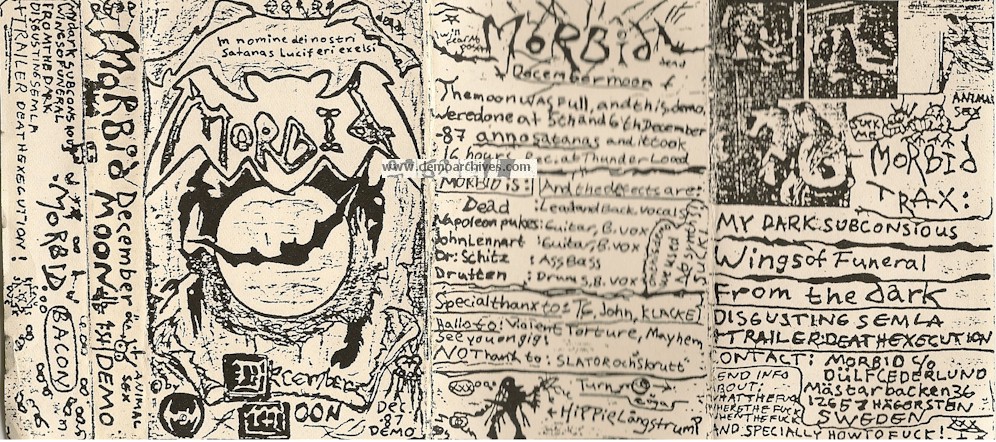 In nomine dei nostri
Satanas Luciferi exelsi
MORBID
December
MOON
Dec
'87
DEMO
MORBID
December
MOON
DEMO
MORBID
BACON
FROM THE DARK
DISGUSTING SEMLA
+TRAILER DEATHEXECUTION!
MORBID
Dead
+Decembermoon+
The moon was full, and this demo
were done at 5th and 6th December
-87 anno satanas and it took
16 hours Rec. at Thunder Load
www.demoarchives.com
MORBID is: And the defects are:
Dead :Lead and Back. vocals
Napoleon pukes:Guitar, B. vox
John Lennart :Guitar, B. vox
Dr: Schitz :Ass Bass
Drutten :Drums, B. vox
Special thanx to: TG, John, KLACKE!
Hallo to: Violent Torture, Mayhem,
see you on gig!
NO Thanx to: "SLATOROCH"
+HippieLångstrump
ANIMAL
SEX
MORBID
TRAX:
MY DARK SUBCONSIOUS
Wings of Funeral
From the dark
DISGUSTING SEMLA
+TRAILER:DEATHEXECUTION
CONTACT: MORBID C/o
ÜLF CEDERLUND
Mästarbacken 36
12657 HÄGERSTEN
SWEDEN
SEND INFO
ABOUT:
WHAT THE FUCK
WHERE THE FUCK
WHEN THE FUCK
AND SPECIALLY HOW TO FUCK!